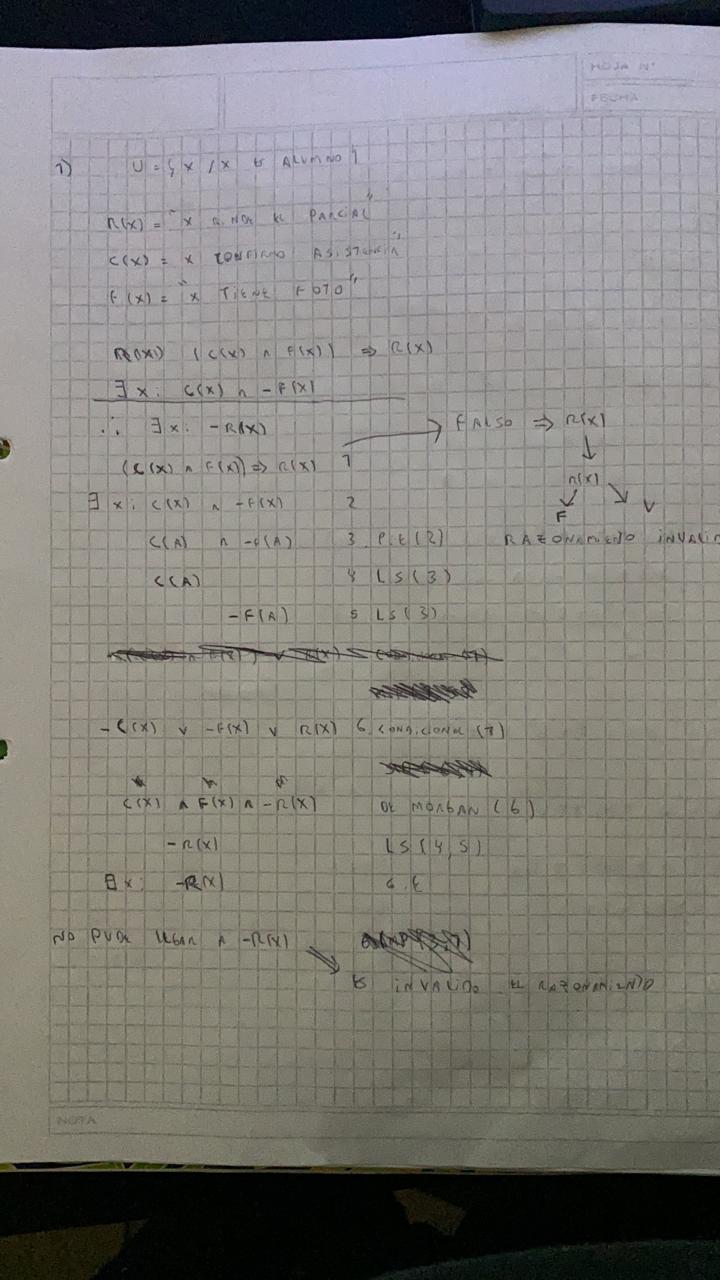 HOJA N°
FECHA
1) U = { x / x ES ALUMNO }
R(x) = "x RINDE EL PARCIAL"
C(x) = x CONFIRMO ASISTENCIA"
F(x) = "x TIENE FOTO"
(C(x) ∧ F(x)) ⇒ R(x)
∃ x: C(x) ∧ -F(x)
∴ ∃ x: -R(x) → FALSO ⇒ R(x)
↓
(C(x) ∧ F(x)) ⇒ R(x) 1
R(x)
∃ x: C(x) ∧ -F(x) 2
F V
C(A) ∧ -F(A) 3 P.E(2) RAZONAMIENTO
C(A) 4 LS(3)
-F(A) 5 LS(3)
-C(x) ∨ -F(x) ∨ R(x) 6. CONDICIONAL (1)
C(x) ∧ F(x) ∧ -R(x) DE MORGAN (6)
-R(x) LS(4,5)
∃ x: -R(x) G.E
NO PUDE LLEGAR A -R(x)
ES INVALIDO EL RAZONAMIENTO
NOTA